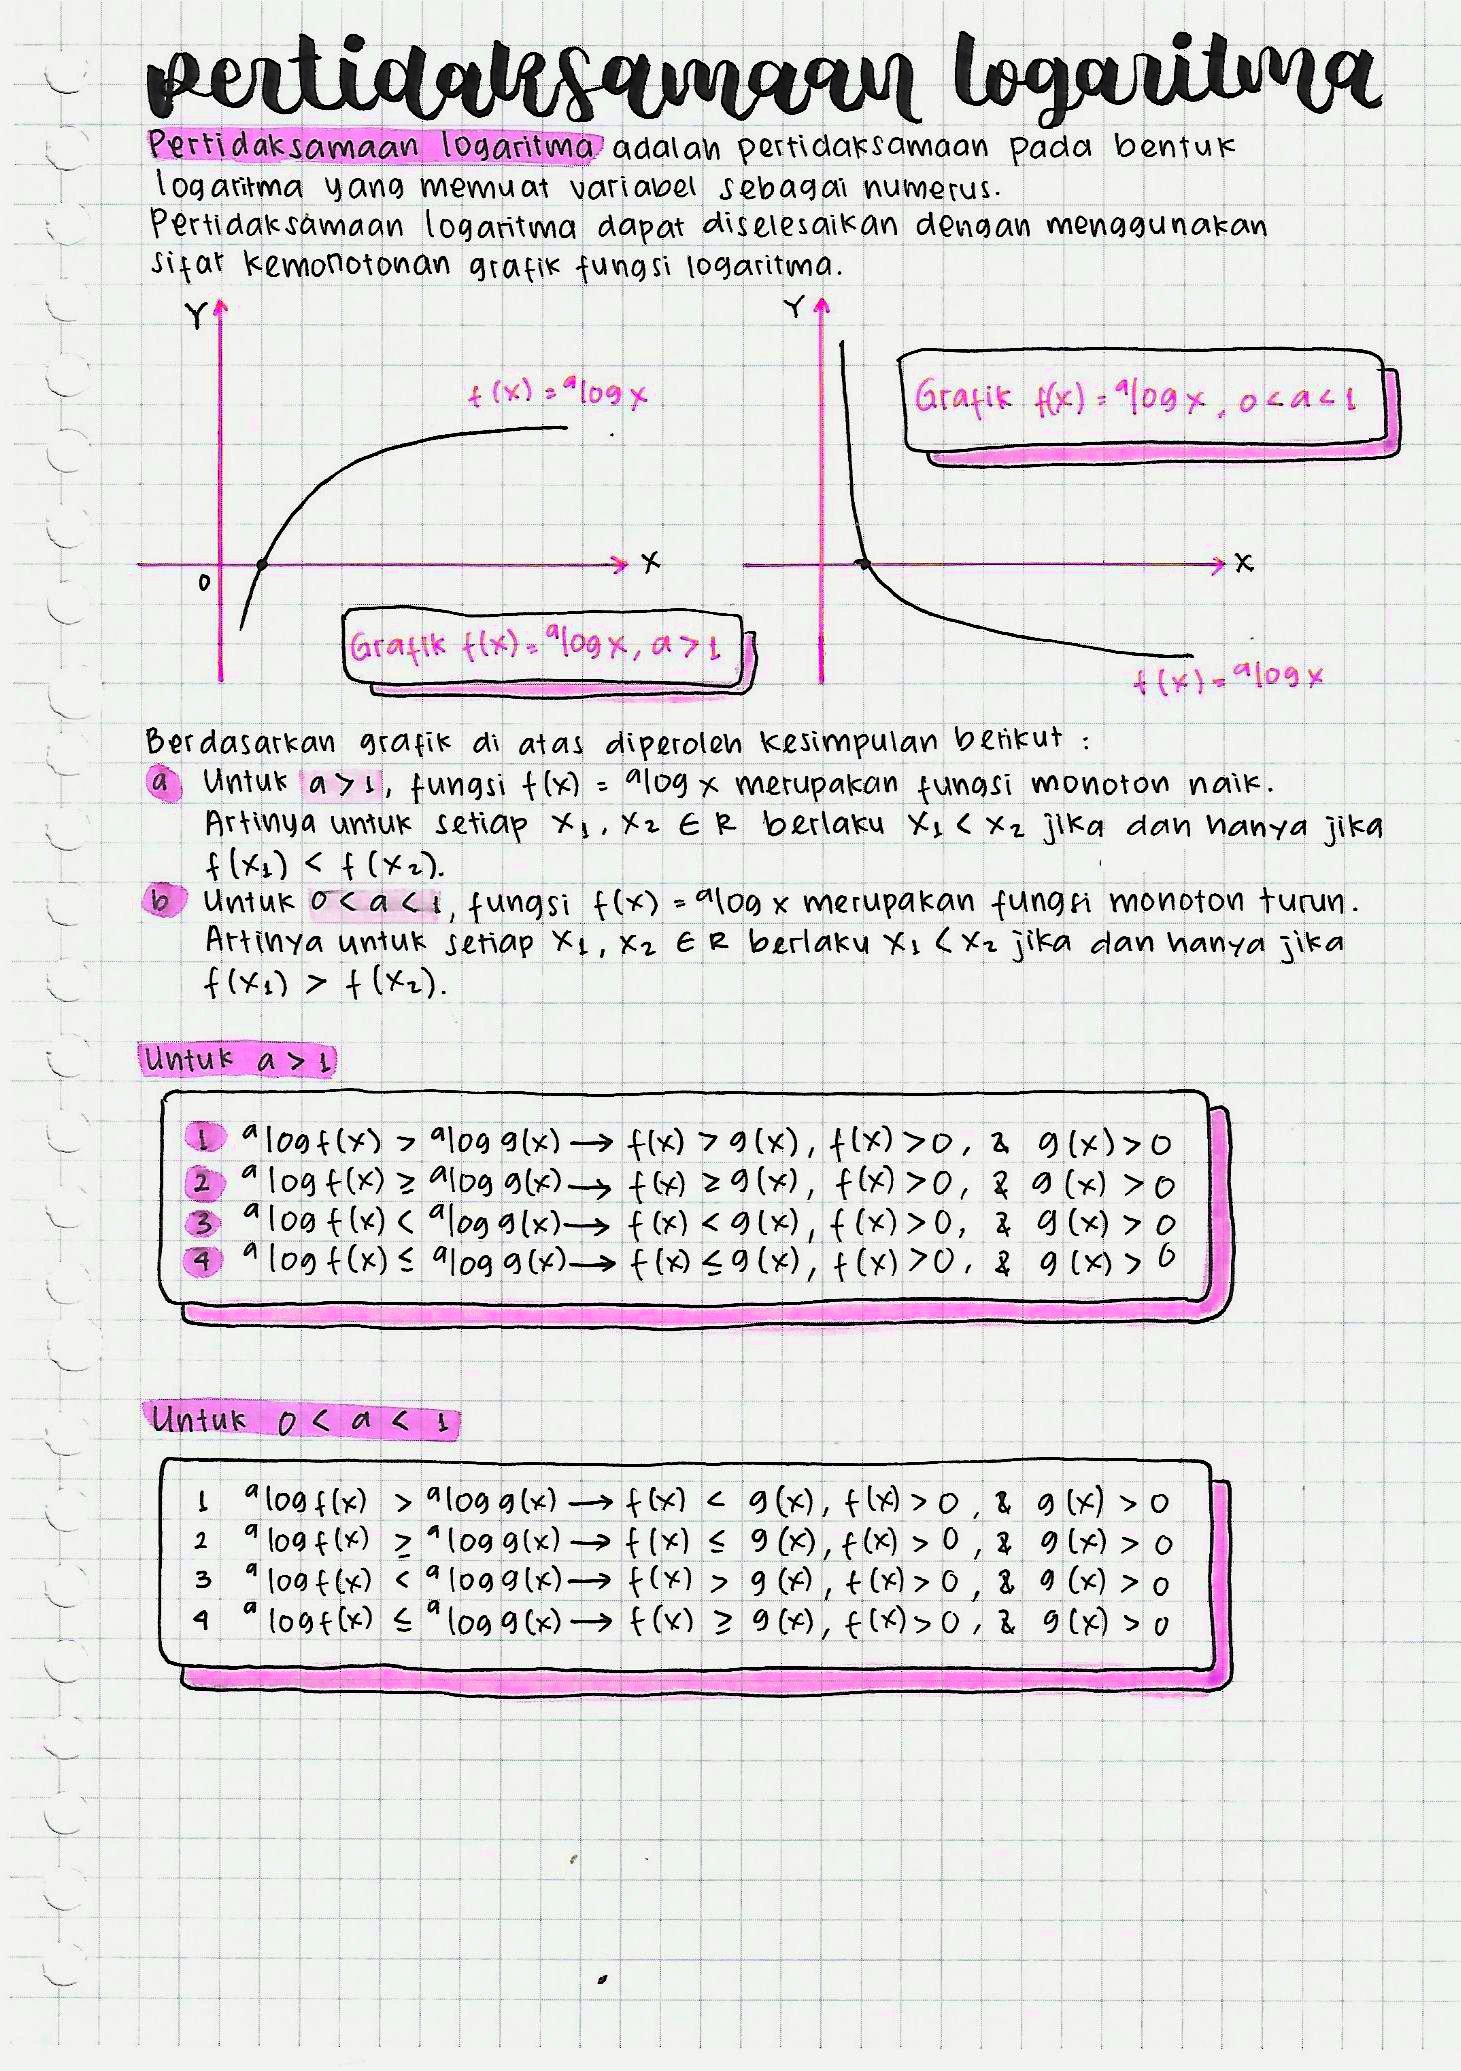 pertidaksamaan logaritma
Pertidaksamaan logaritma adalah pertidaksamaan pada bentuk
logaritma yang memuat variabel sebagai numerus.
Pertidaksamaan logaritma dapat diselesaikan dengan menggunakan
sifat kemonotonan grafik fungsi logaritma.
Y
f(x) = ᵃlog x
0
X
Grafik f(x) = ᵃlog x, a > 1
Y
Grafik f(x) = ᵃlog x, 0 < a < 1
X
f(x) = ᵃlog x
Berdasarkan grafik di atas diperoleh kesimpulan berikut :
a Untuk a > 1, fungsi f(x) = ᵃlog x merupakan fungsi monoton naik.
Artinya untuk setiap x₁, x₂ ∈ R berlaku x₁ < x₂ jika dan hanya jika
f(x₁) < f(x₂).
b Untuk 0 < a < 1, fungsi f(x) = ᵃlog x merupakan fungsi monoton turun.
Artinya untuk setiap x₁, x₂ ∈ R berlaku x₁ < x₂ jika dan hanya jika
f(x₁) > f(x₂).
Untuk a > 1
1 ᵃlog f(x) > ᵃlog g(x) → f(x) > g(x), f(x) > 0, & g(x) > 0
2 ᵃlog f(x) ≥ ᵃlog g(x) → f(x) ≥ g(x), f(x) > 0, & g(x) > 0
3 ᵃlog f(x) < ᵃlog g(x) → f(x) < g(x), f(x) > 0, & g(x) > 0
4 ᵃlog f(x) ≤ ᵃlog g(x) → f(x) ≤ g(x), f(x) > 0, & g(x) > 0
Untuk 0 < a < 1
1 ᵃlog f(x) > ᵃlog g(x) → f(x) < g(x), f(x) > 0, & g(x) > 0
2 ᵃlog f(x) ≥ ᵃlog g(x) → f(x) ≤ g(x), f(x) > 0, & g(x) > 0
3 ᵃlog f(x) < ᵃlog g(x) → f(x) > g(x), f(x) > 0, & g(x) > 0
4 ᵃlog f(x) ≤ ᵃlog g(x) → f(x) ≥ g(x), f(x) > 0, & g(x) > 0